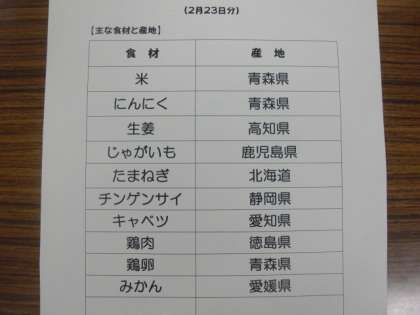 (2月23日分)
【主な食材と産地】
食材 産地
米 青森県
にんにく 青森県
生姜 高知県
じゃがいも 鹿児島県
たまねぎ 北海道
チンゲンサイ 静岡県
キャベツ 愛知県
鶏肉 徳島県
鶏卵 青森県
みかん 愛媛県